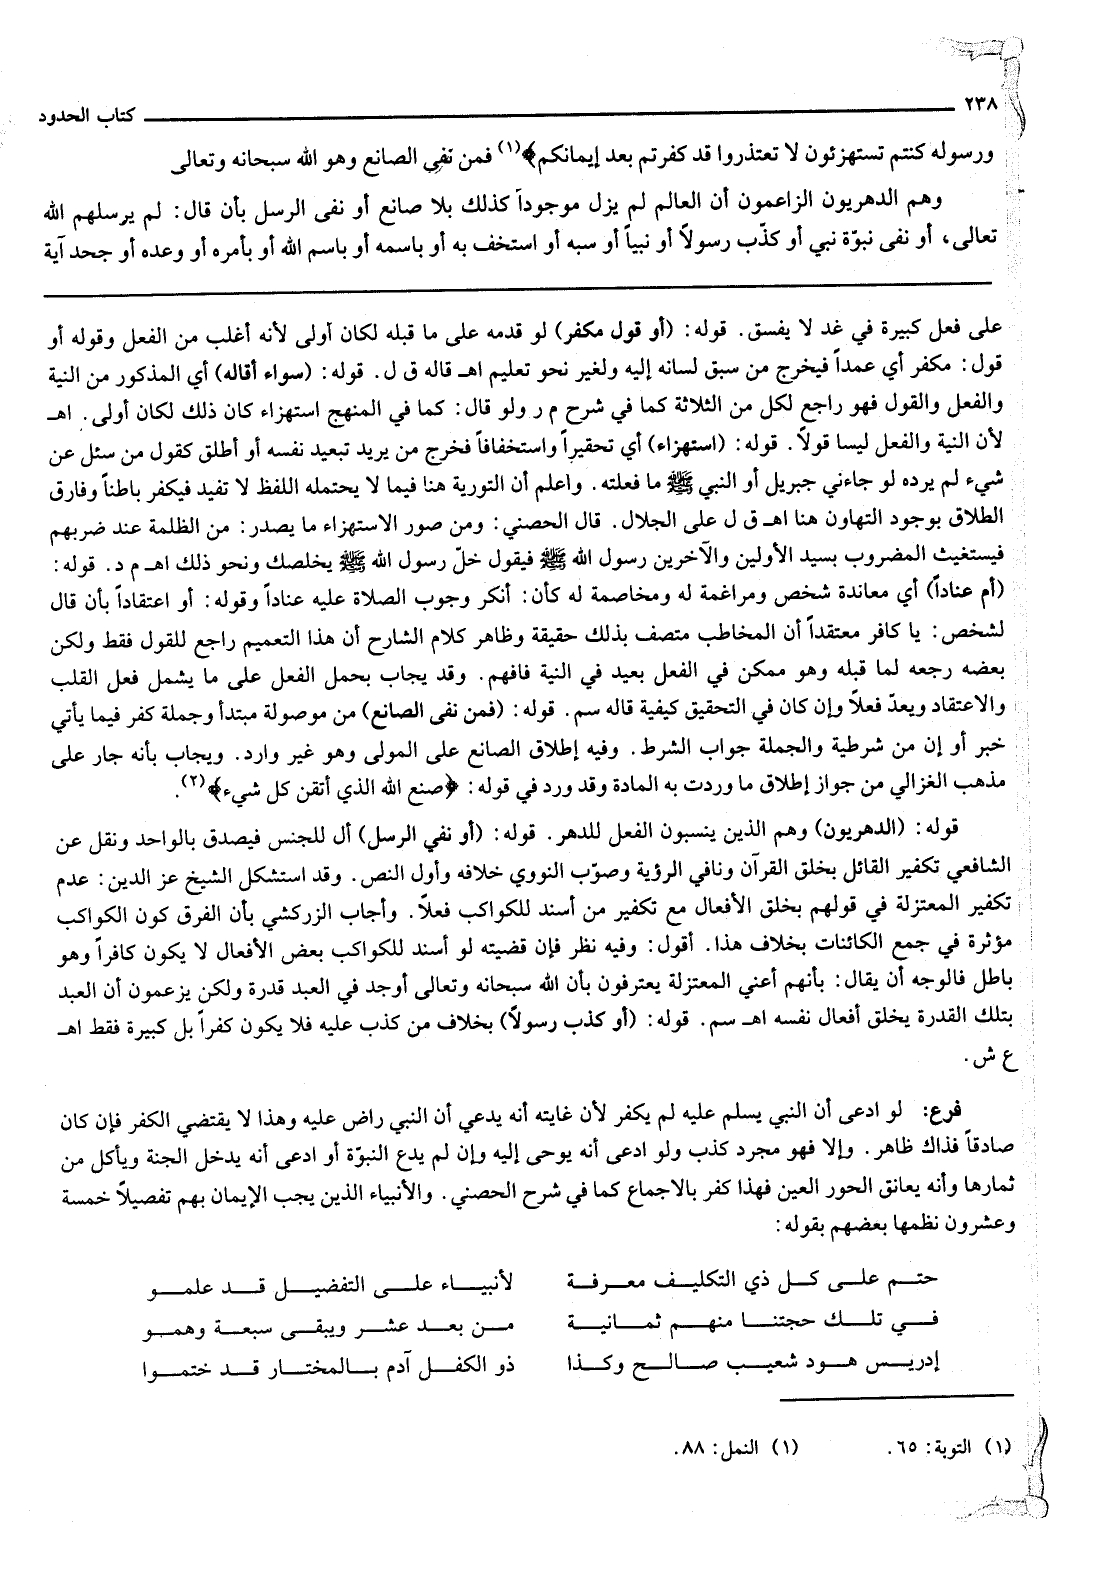 ٢٣٨ كتاب الحدود
ورسوله كنتم تستهزئون لا تعتذروا قد كفرتم بعد إيمانكم﴾(١) فمن نفى الصانع وهو الله سبحانه وتعالى
وهم الدهريون الزاعمون أن العالم لم يزل موجوداً كذلك بلا صانع أو نفى الرسل بأن قال: لم يرسلهم الله
تعالى، أو نفى نبوّة نبي أو كذّب رسولاً أو نبياً أو سبه أو استخف به أو باسمه أو باسم الله أو بأمره أو وعده أو جحد آية
على فعل كبيرة في غد لا يفسق. قوله: (أو قول مكفر) لو قدمه على ما قبله لكان أولى لأنه أغلب من الفعل وقوله أو
قول: مكفر أي عمداً فيخرج من سبق لسانه إليه ولغير نحو تعليم اهـ قاله ق ل. قوله: (سواء أقاله) أي المذكور من النية
والفعل والقول فهو راجع لكل من الثلاثة كما في شرح م ر ولو قال: كما في المنهج استهزاء كان ذلك لكان أولى. اهـ
لأن النية والفعل ليسا قولاً. قوله: (استهزاء) أي تحقيراً واستخفافاً فخرج من يريد تبعيد نفسه أو أطلق كقول من سئل عن
شيء لم يرده لو جاءني جبريل أو النبي ﷺ ما فعلته. واعلم أن التورية هنا فيما لا يحتمله اللفظ لا تفيد فيكفر باطناً وفارق
الطلاق بوجود التهاون هنا اهـ ق ل على الجلال. قال الحصني: ومن صور الاستهزاء ما يصدر: من الظلمة عند ضربهم
فيستغيث المضروب بسيد الأولين والآخرين رسول الله ﷺ فيقول خلّ رسول الله ﷺ يخلصك ونحو ذلك اهـ م د. قوله:
(أم عناداً) أي معاندة شخص ومراغمة له ومخاصمة له كأن: أنكر وجوب الصلاة عليه عناداً وقوله: أو اعتقاداً بأن قال
لشخص: يا كافر معتقداً أن المخاطب متصف بذلك حقيقة وظاهر كلام الشارح أن هذا التعميم راجع للقول فقط ولكن
بعضه رجعه لما قبله وهو ممكن في الفعل بعيد في النية فافهم. وقد يجاب بحمل الفعل على ما يشمل فعل القلب
والاعتقاد ويعدّ فعلاً وإن كان في التحقيق كيفية قاله سم. قوله: (فمن نفى الصانع) من موصولة مبتدأ وجملة كفر فيما يأتي
خبر أو إن من شرطية والجملة جواب الشرط. وفيه إطلاق الصانع على المولى وهو غير وارد. ويجاب بأنه جار على
مذهب الغزالي من جواز إطلاق ما وردت به المادة وقد ورد في قوله: ﴿صنع الله الذي أتقن كل شيء﴾(٢).
قوله: (الدهريون) وهم الذين ينسبون الفعل للدهر. قوله: (أو نفي الرسل) أل للجنس فيصدق بالواحد ونقل عن
الشافعي تكفير القائل بخلق القرآن ونافي الرؤية وصوّب النووي خلافه وأول النص. وقد استشكل الشيخ عز الدين: عدم
تكفير المعتزلة في قولهم بخلق الأفعال مع تكفير من أسند للكواكب فعلاً. وأجاب الزركشي بأن الفرق كون الكواكب
مؤثرة في جمع الكائنات بخلاف هذا. أقول: وفيه نظر فإن قضيته لو أسند للكواكب بعض الأفعال لا يكون كافراً وهو
باطل فالوجه أن يقال: بأنهم أعني المعتزلة يعترفون بأن الله سبحانه وتعالى أوجد في العبد قدرة ولكن يزعمون أن العبد
بتلك القدرة يخلق أفعال نفسه اهـ سم. قوله: (أو كذب رسولاً) بخلاف من كذب عليه فلا يكون كفراً بل كبيرة فقط اهـ
ع ش.
فرع: لو ادعى أن النبي يسلم عليه لم يكفر لأن غايته أنه يدعي أن النبي راض عليه وهذا لا يقتضي الكفر فإن كان
صادقاً فذاك ظاهر. وإلا فهو مجرد كذب ولو ادعى أنه يوحى إليه وإن لم يدع النبوّة أو ادعى أنه يدخل الجنة ويأكل من
ثمارها وأنه يعانق الحور العين فهذا كفر بالاجماع كما في شرح الحصني. والأنبياء الذين يجب الإيمان بهم تفصيلاً خمسة
وعشرون نظمها بعضهم بقوله:
حتـم علـى كـل ذي التكليـف معـرفـة لأنبيـاء علـى التفضيـل قـد علمـو
فـي تلـك حجتنـا منهـم ثمـانيـة مـن بعـد عشـر ويبقـى سبعـة وهمـو
إدريـس هـود شعيـب صـالـح وكـذا ذو الكفـل آدم بـالمختـار قـد ختمـوا
(١) التوبة: ٦٥. (١) النمل: ٨٨.